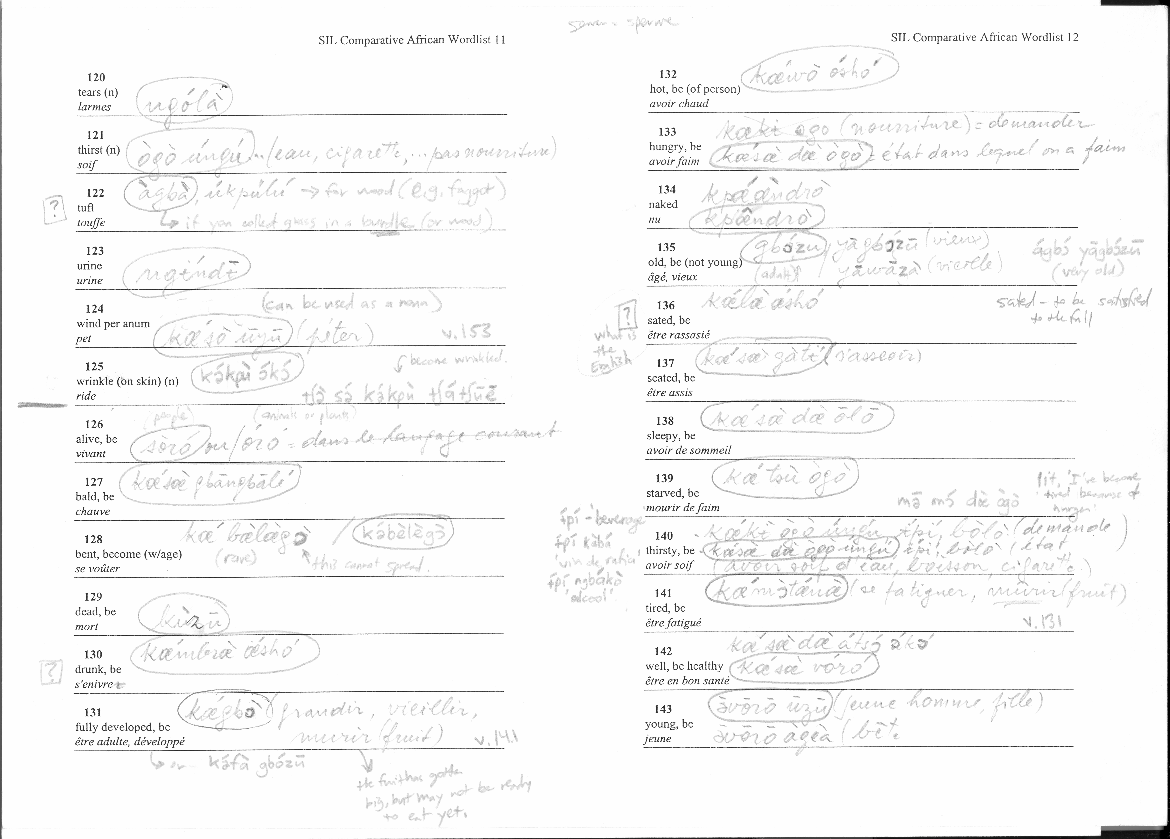 SIL Comparative African Wordlist 11
120
tears (n)
larmes
ngólà
121
thirst (n)
soif
ògò úngú (eau, cigarette, ... pas nourriture)
122
tuft
touffe
?
àgbà, úkpúlú → for wood (e.g. faggot)
↳ if you collect grass in a bundle (or wood)
123
urine
urine
124
wind per anum
pet
(can be used as a noun)
kǽsò ūzū (péter)
v.153
125
wrinkle (on skin) (n)
ride
kə́kpù ə́kə́
↓ become wrinkled.
126
alive, be
vivant
(people)
(animals or plants)
sòró ou/óró = dans le langage courant
127
bald, be
chauve
kǽsæ̀ gbāngbālé
128
bent, become (w/age)
se voûter
kǽ bə̀lə̀gə̀ / kə́bə̀lə̀gə̀
(rare)
this cannot spread.
129
dead, be
mort
kùzū
130
drunk, be
s'enivre
?
kǽmbræ̀ ǽshó
131
fully developed, be
être adulte, développé
kǽgbə̀ (grandir, vieillir,
murir (fruit)
v.141
↳ or kə́fà gbózū
the fruit has gotten
big, but may not be ready
to eat yet.
SIL Comparative African Wordlist 12
132
hot, be (of person)
avoir chaud
kǽwò óshó
133
hungry, be
avoir faim
kǽkɨ ogo (nourriture) = demander
kǽsæ̀ dæ̀ ògò = état dans lequel on a faim
134
naked
nu
kpǽæ̀ndrò
kpæ̂ndrò
135
old, be (not young)
âgé, vieux
gbózu, yāgbózū (vieux)
(adult) yāwāzà (vieille)
ágbó yāgbózū
(very old)
136
sated, be
être rassasié
?
what is
the
English
kǽlà ǽshó
sated - to be satisfied
to the full
137
seated, be
être assis
kǽsæ̀ gàtɨ́ (s'asseoir)
138
sleepy, be
avoir de sommeil
kǽsæ̀ dæ̀ ōlō
139
starved, be
mourir de faim
kǽ tsù ògò
mā mə́ dæ̀ ògò
lit, 'I've become
tired because of
hunger'
140
thirsty, be
avoir soif
kǽkɨ ògò úngú, ɨ́pɨ́, bòlò (demande)
kǽsæ̀ dæ̀ ògò úngú, ɨ́pɨ́, bòlò (état
(avoir soif d'eau, boisson, cigarete)
ɨ́pɨ́ - beverage
ɨ́pɨ́ kə́bə́
vin de rafia
ɨ́pɨ́ ngbákò
'alcool'
141
tired, be
être fatigué
(se fatiguer, murir (fruit)
v.131
142
well, be healthy
être en bon santé
kǽsæ̀ dæ̀ átsə́ ə́kə́
kǽsæ̀ vōró
143
young, be
jeune
ə̀vōrō ūzū (jeune homme, fille)
ə̀vōrō àgēa (bête